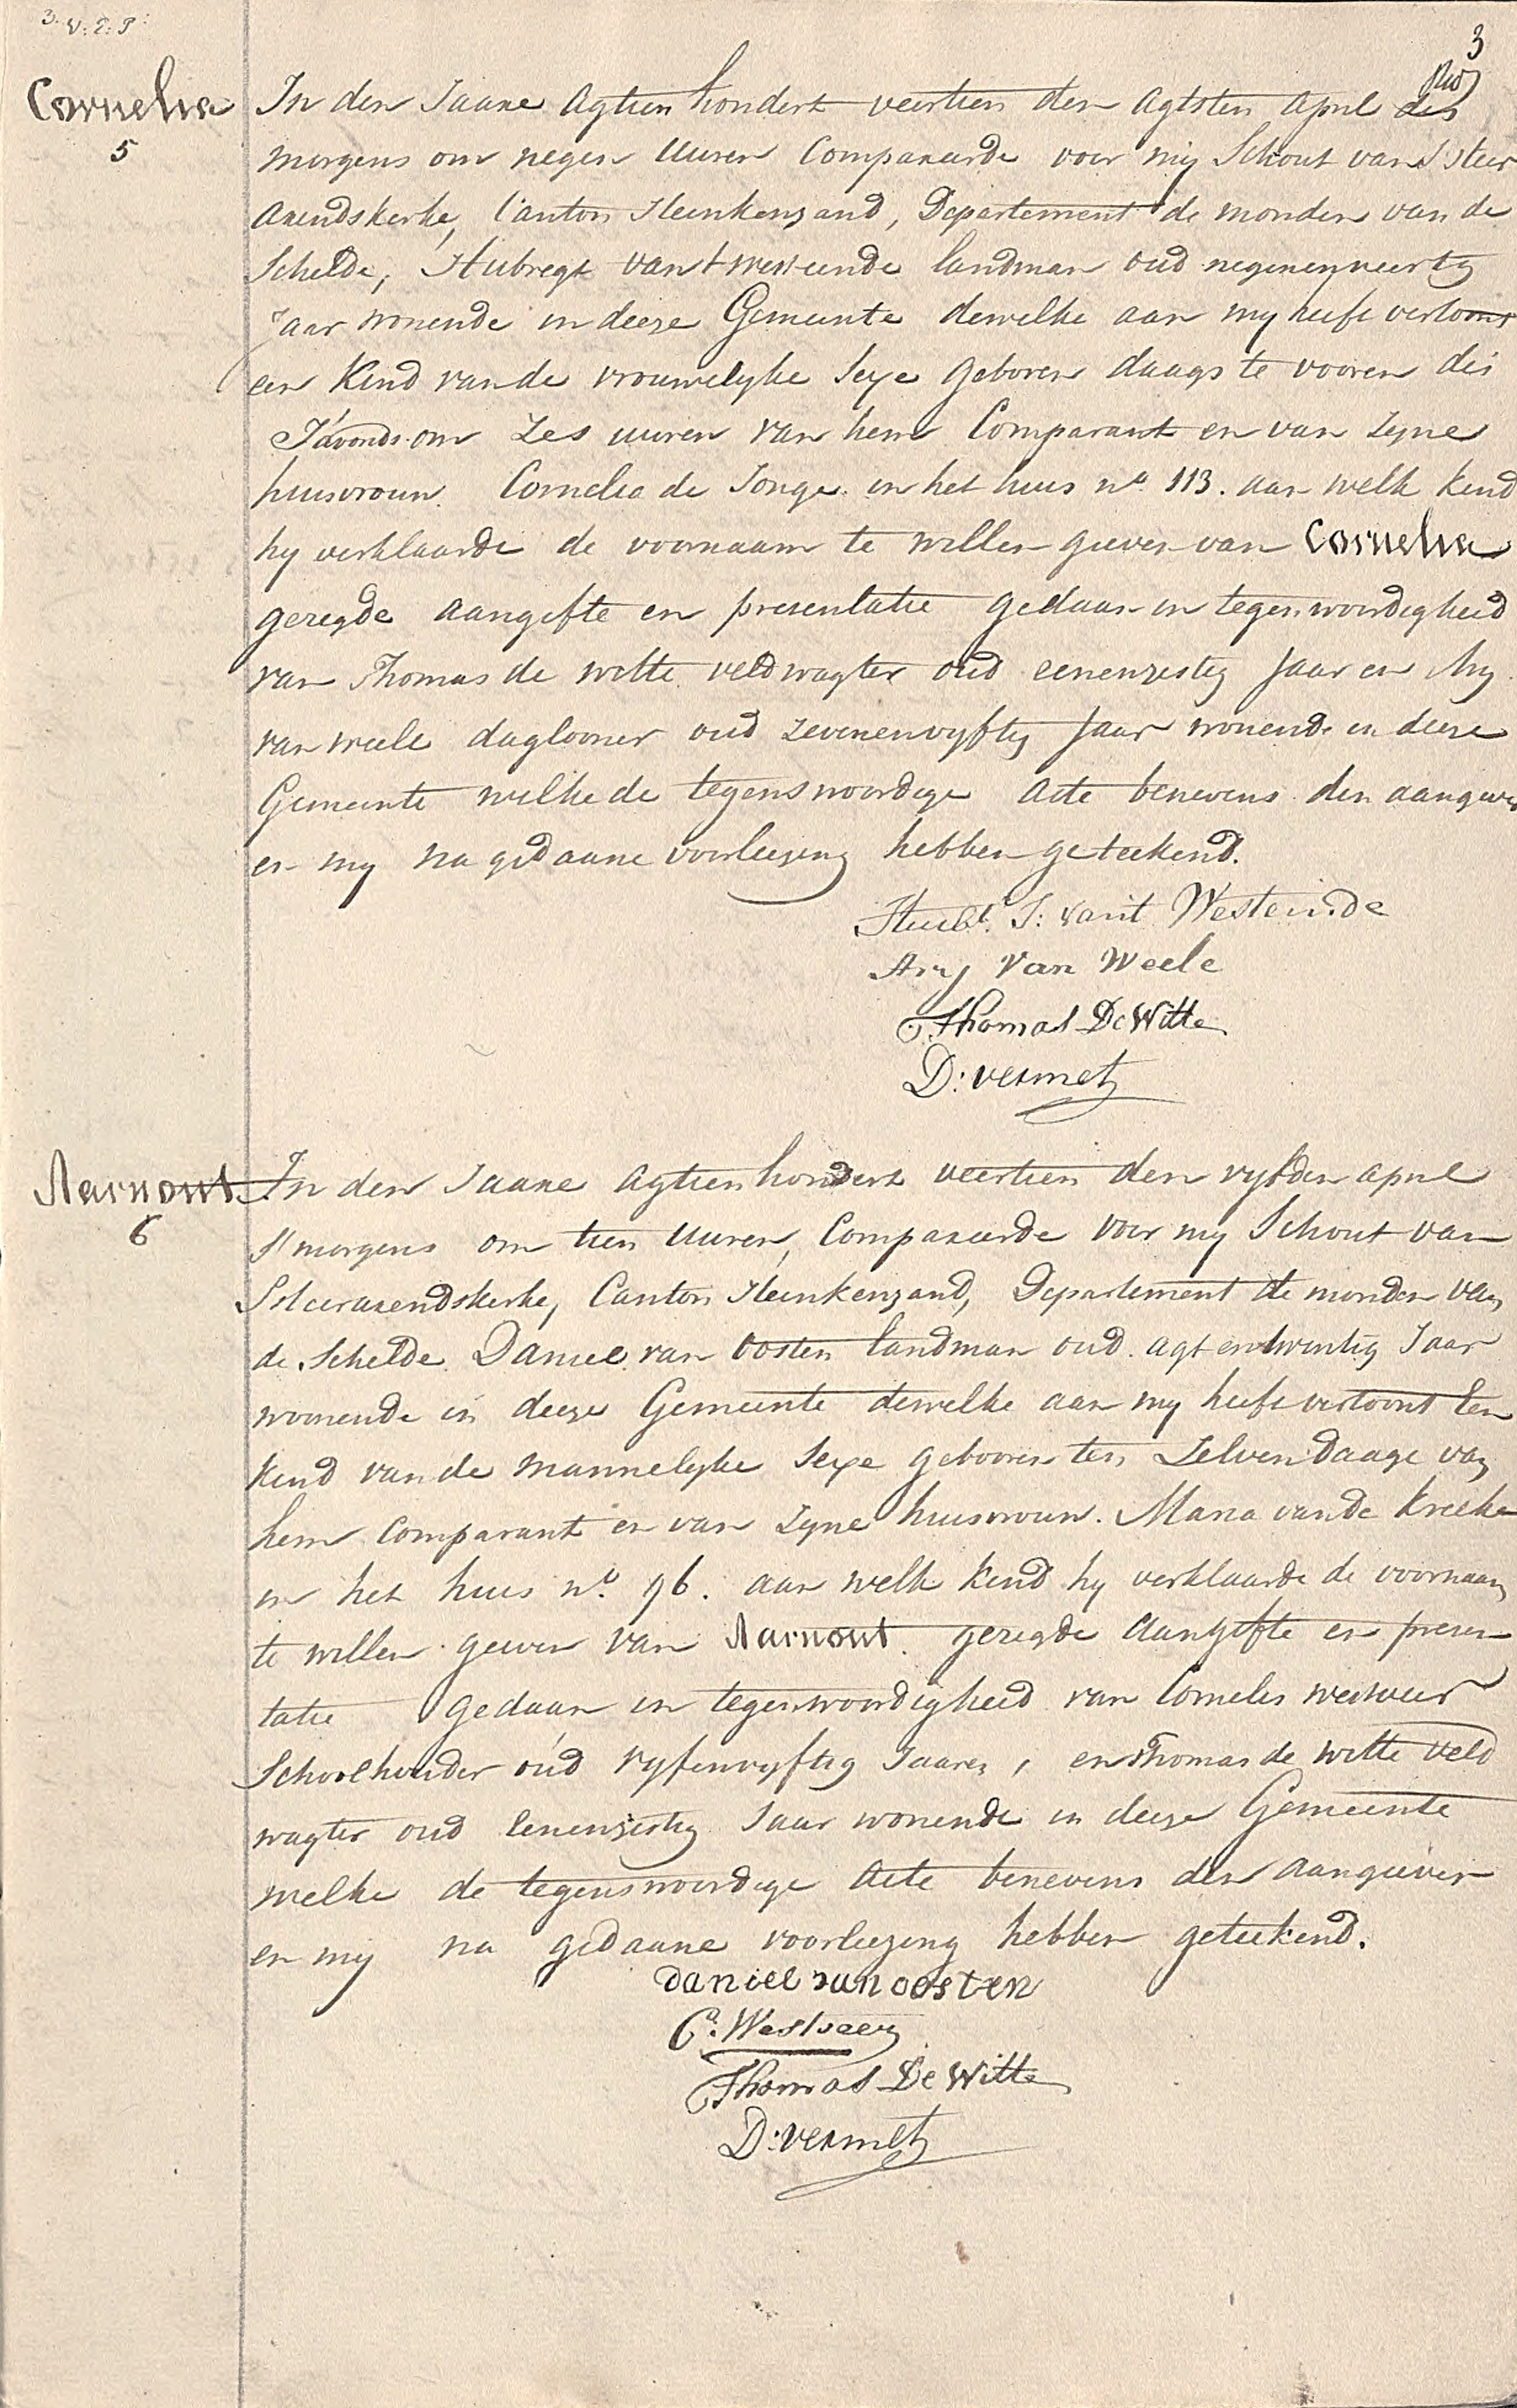 3. V: E: P:
3
Cornelia
5
In den Jaare Agtien hondert veertien den Agtsten April des
morgens om negen Uuren Compareerde voor my Schout van S'Heer
Arendskerke, Canton Heinkenzand, Departement de monden van de
Schelde, Hubregt van t westeinde landman oud negenenveertig
Jaar wonende in deeze Gemeente dewelke aan my heeft vertoont
een Kind van de vrouwelyke Sexe geboren daags te vooren des
S'avonds om Zes uuren van hem Comparant en van Zyne
huisvrouw Cornelia de Jonge in het huis no 113. aan welk kind
hy verklaarde de voornaam te willen geeven van Cornelia
gezegde aangifte en presentatie gedaan in tegenwoordigheid
van Thomas de witte veldwagter oud eenenzestig Jaar en Ary
van weele daglooner oud zevenenvyftig Jaar wonende in deeze
Gemeente welke de tegenswoordige Acte benevens den aangever
en my na gedaane voorleezing hebben geteekend.
Huibt. J: van't Westeinde
Ary Van Weele
Thomas De Witte
D: vermet
Aarnout
6
In den Jaare Agtien hondert veertien den vyfden april
S'morgens om tien Uuren, Compareerde voor my Schout van
S'Heerarendskerke, Canton Heinkenzand, Departement de monden van
de Schelde Daniel van Oosten landman oud agtentwintig Jaar
wonende in deeze Gemeente dewelke aan my heeft vertoont Een
kind van de mannelyke Sexe gebooren ten Zelven daage van
hem Comparant en van Zyne huisvrouw. Maria van de kreeke
in het huis no. 96. aan welk kind hy verklaarde de voornaam
te willen geven van Aarnout. gezegde aangifte en presen
tatie gedaan in tegenwoordigheid van Cornelis westveer
Schoolhouder oud vyfenvyftig Jaaren, en Thomas de witte veld
wagter oud Eenenzestig Jaar wonende in deeze Gemeente
welke de tegenswoordige Acte benevens den aangeever
en my na gedaane voorleezing hebben geteekend.
Daniel van oosten
C. Westveer
Thomas De Witte
D: vermet